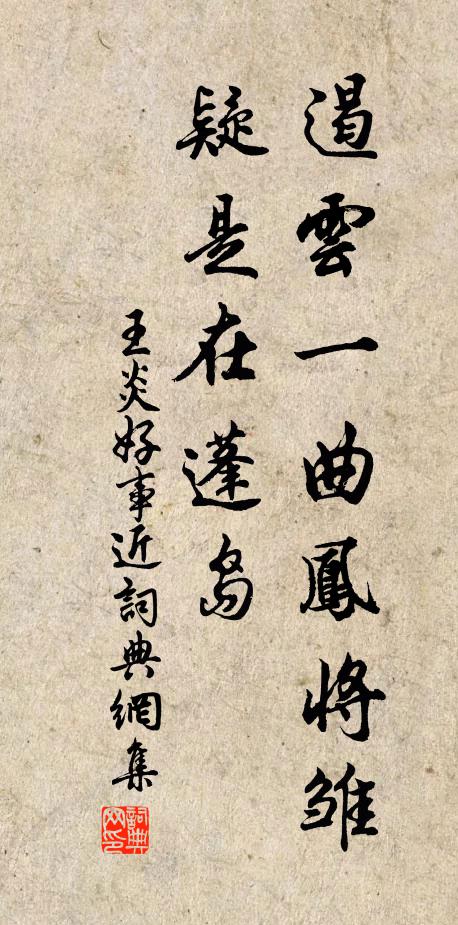 遏雲一曲鳳將雛
疑是在蓬島
王炎好事近詞典網集
詞典網印